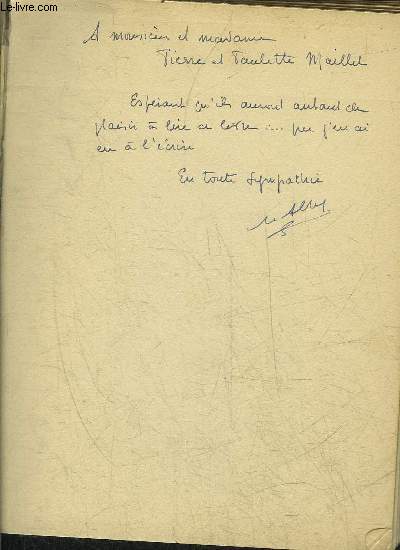 www.le-livre.com
A monsieur et madame
Pierre et Paulette Maillet
Espérant qu'ils auront autant de
plaisir à lire ce livre ... que j'en ai
eu à l'écrire
En toute sympathie